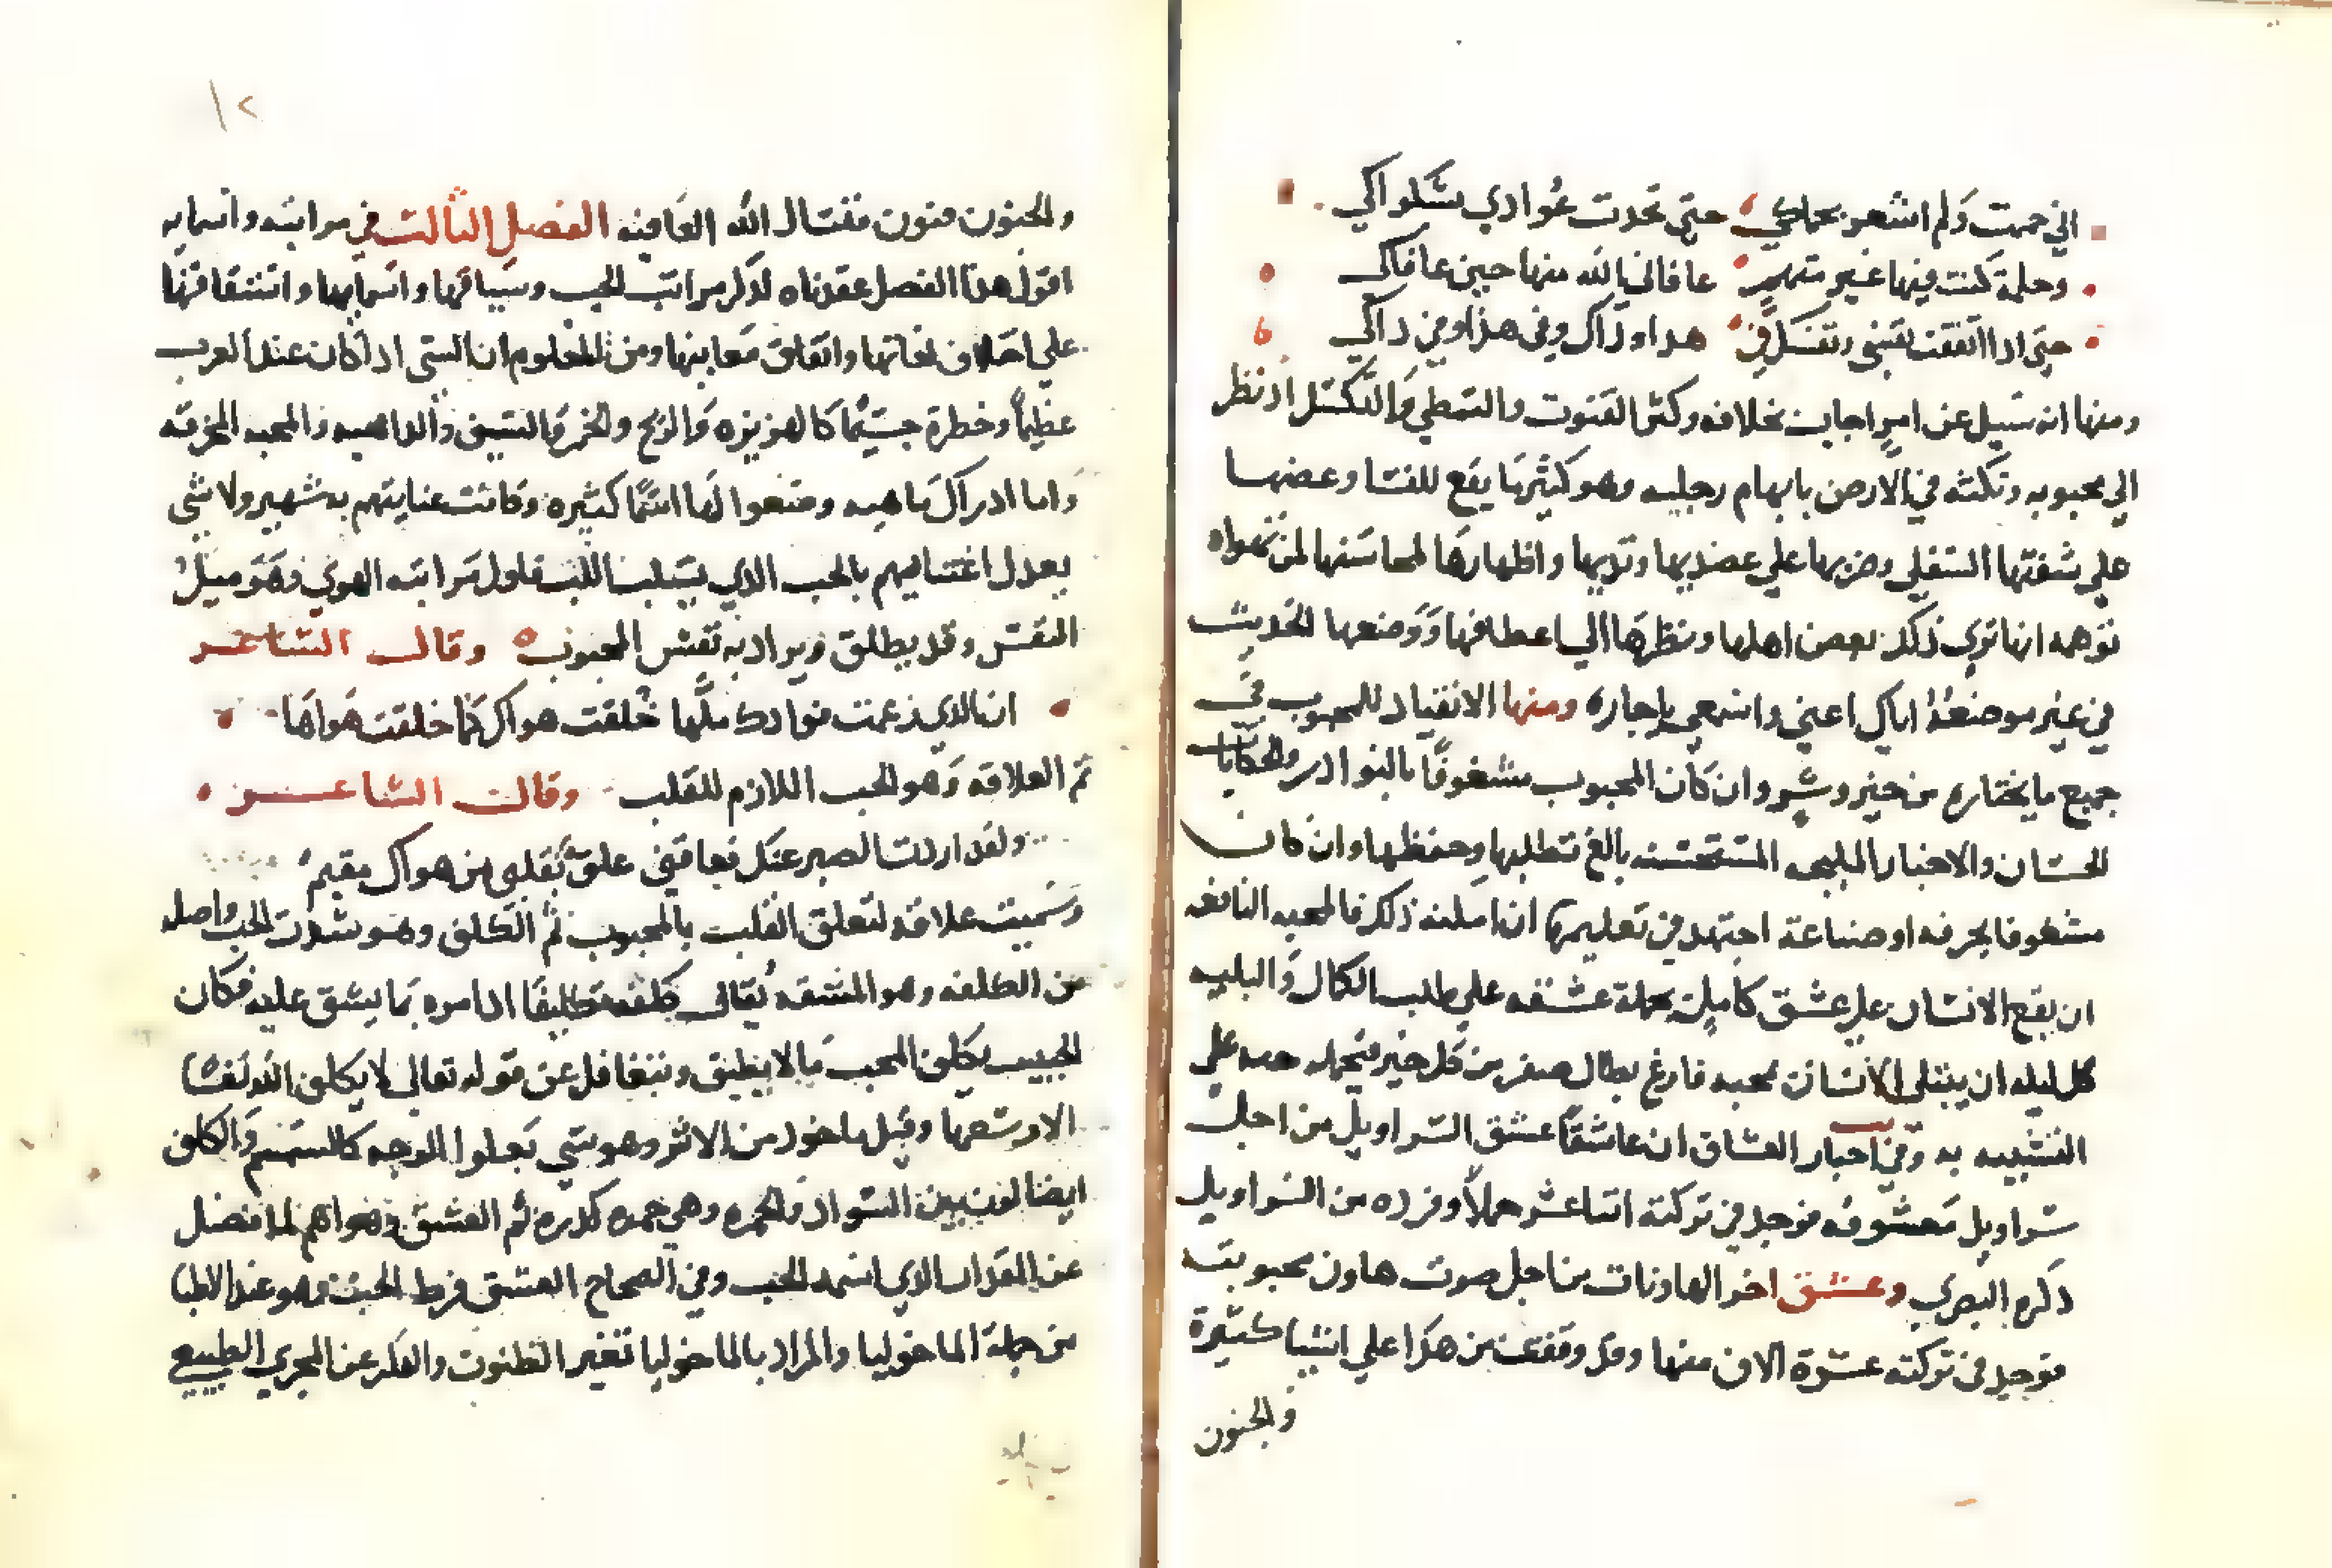 اني حممت ولم اشعر بحماكي حتى تحدت عوادي بشكواكي
وحلمة كنت فيها غير متهم عافاني الله منها حين عافاكى
حتى ادا اتفقت نفسي ونفسك في هدا وذاك وفي هذا وفي داكي
ومنها انه سيل عن امر اجاب بخلافه وكثر القنوت والتمطي والتكسل اذ نظر
الي محبوبه ونكته في الارض بابهام رجليه وهو كثير ما يقع للنسا وعضها
على شفتها السفلي وضربها علي عضديها وثديها واظهارها لمحاسنها لمن تهواه
توهمه انها تري ذلك بعض اهلها ونظرها الي اعطافها ووضعها الحديث
في غير موضعه اياك اعني واسمعي ياجاره ومنها الانقياد للمحبوب في
جميع ما يختاره من خير وشر وان كان المحبوب مشغوفا بالنوادر والحكايات
الحسان والاخبار المليحه المستحسنه بالغ تطلبها وحفظها وان كان
مشغوفا بحرفه او صناعة اجتهد في تعليمها ان امكنه ذلك فالمحبه النافعه
ان يقع الانسان علي عشق كامل يحمله عشقه علي طلب الكمال والبليه
كل ليله ان يبتلى الانسان بمحبه فارغ بطال صفر من كل خير يحمله حبه علي
التشبيه به وفي اخبار العشاق ان عاشقا عشق السراويل من اجل
سراويل معشوقه فوجد في تركته اثنا عشر حملا وفرده من السراويل
ذكره البصري وعشق اخر الهاونات من اجل صوت هاون محبوبته
فوجد في تركته عشرة الاف منها وقد وقفت من هدا علي اشيا كثيرة
والجنون
١٢
والجنون فنون فنسال الله العافيه الفصل الثالث في مراتبه واسمايه
اقول هدا الفصل عقدناه لذكر مراتب الحب وسياقها واسمايها واشتقاقها
علي اختلاف لغاتها واتفاق معانيها ومن المعلوم ان الشي ادا كان عند العرب
عظيما وخطرة جسيما كالهزبزه والرمح والخمر والسيف والداهيه والمحبه المحرقه
واما ادراك ماهيه وضعوا لها اسما كثيره وكانت عنايتهم به شهير ولا شي
يعدل اعتنايهم بالحب الدي يسلب اللب فاول مراتبه الهوي وهو ميل
النفس وقد يطلق ويراد به نفس المحبوب وقال الشاعر
ان الذي زعمت فوادك ملها خلقت هواك كما خلقت هوا لها
ثم العلاقه وهو الحب اللازم للقلب وقال الشاعر
ولقد اردت الصبر عنك فعاقني علق بقلبي من هواك مقيم
وسميت علاقه لتعلق القلب بالمحبوب ثم الكلف وهو شدت الحب واصله
من الكلفه وهو المشقه يقال كلفه تكليفا ادا امره بما يشق عليه فكان
الحبيب يكلف المحب ما لا يطيق ويتغافل عن قوله تعالي لا يكلف الله نفسا
الا وسعها وقيل ماخود من الاثر وهو شي يعلوا الوجه كالسمسم والكلف
ايضا لون بين السواد والحمره وهي حمره كدره ثم العشق وهو اسم لما فضل
عن المقدار الذي اسمه الحب وفي الصحاح العشق فرط الحب وهو عند الاطبا
من جملة الماخوليا والمراد بالماخوليا تغير الظنون والفكر عن المجري الطبيعي